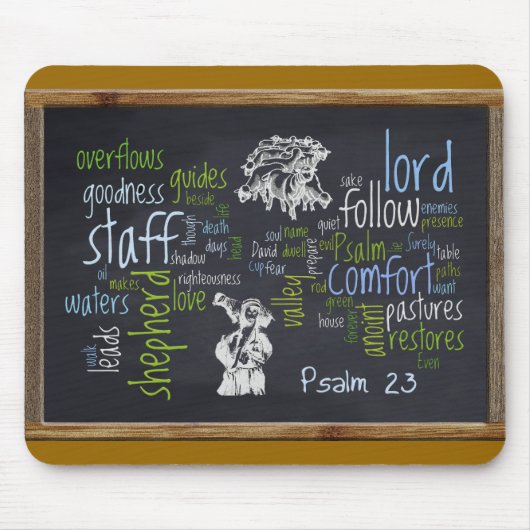 overflows
goodness
guides
beside
staff
though
death
days
life
head
shadow
oil
makes
righteousness
waters
shepherd
love
walk
leads
lord
sake
follow
enemies
presence
quiet
soul
name
David
dwell
evil
Psalm
lie
Surely
table
cup
fear
prepare
comfort
paths
want
valley
rod
green
house
forever
anoint
pastures
restores
Even
Psalm 23